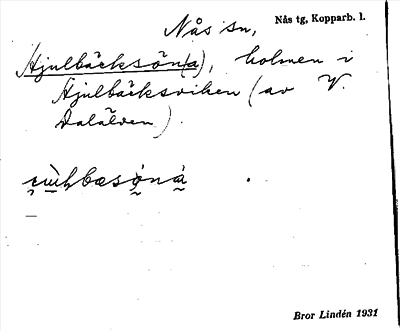 Nås sn,
Nås tg, Kopparb. l.
Hjulbäcksön(a), holmen i
Hjulbäcksviken (av V.
Dalälven).
Bror Lindén 1931